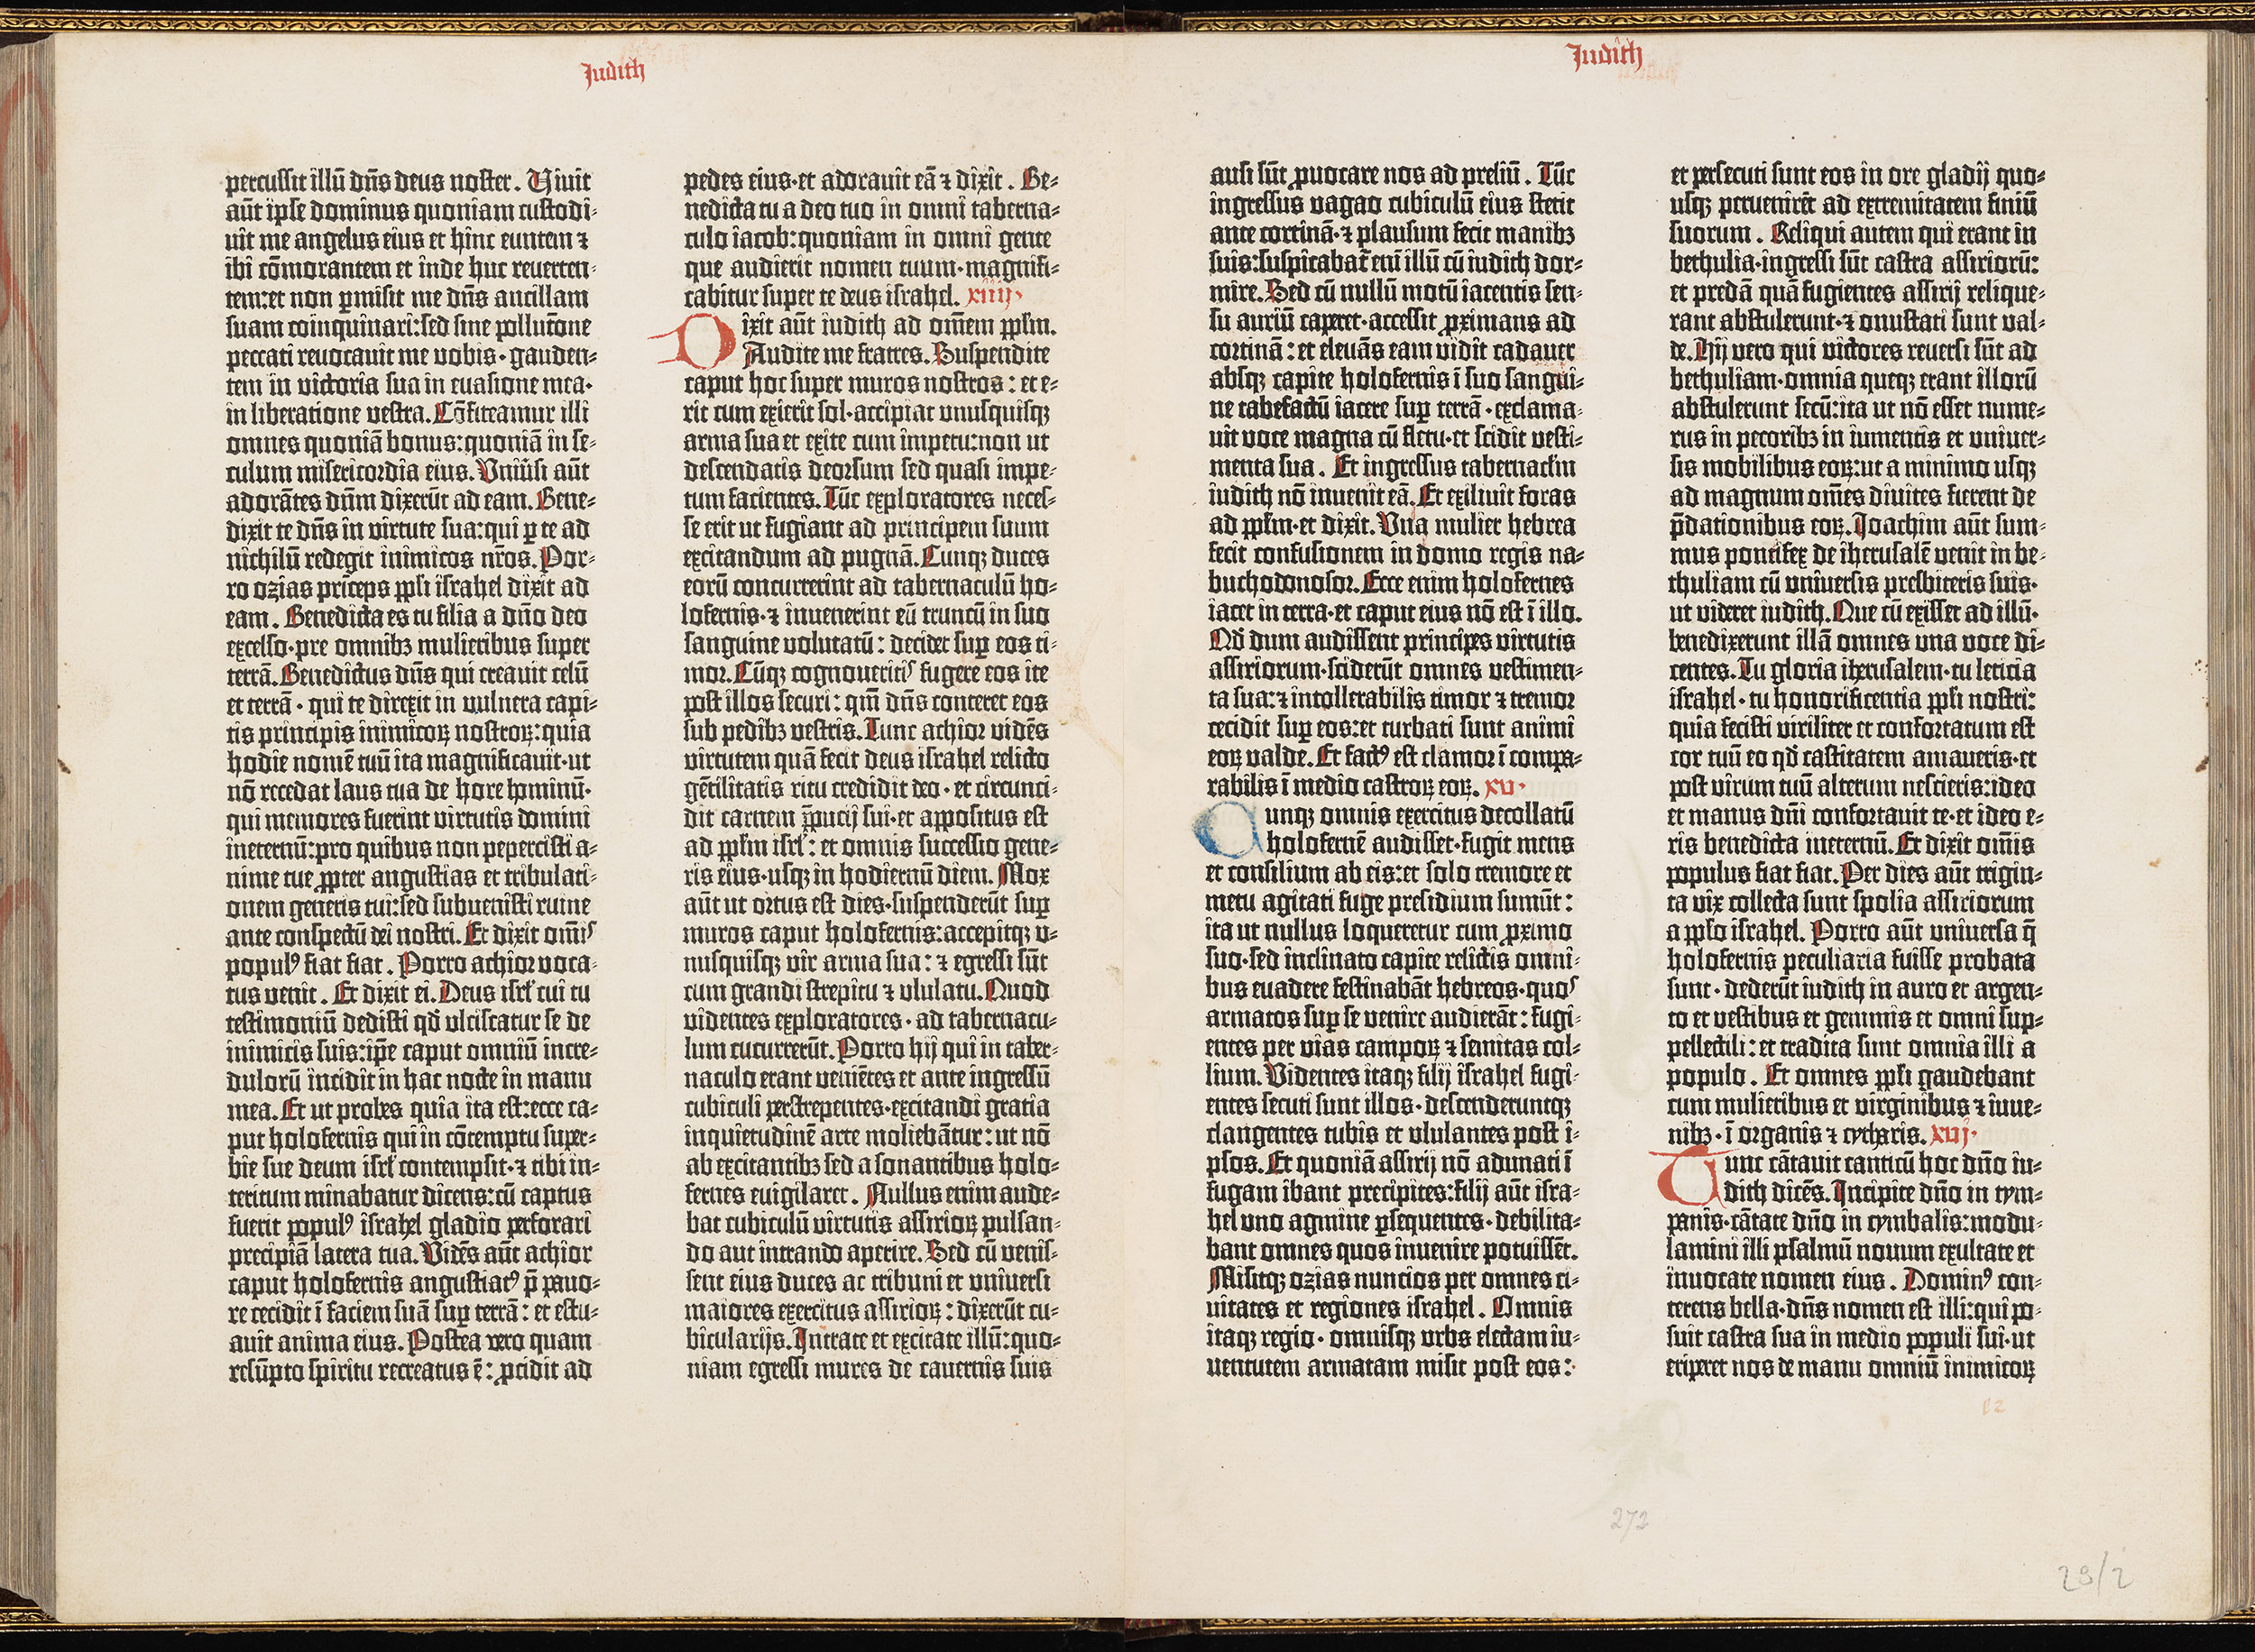 Judith
percussit illū dn̄s deus noster. Viuit
aūt ipse dominus quoniam custodi-
uit me angelus eius et hinc euntem ⁊
ibi cōmorantem et inde huc reuerten-
tem:et non ꝑmisit me dn̄s ancillam
suam coinquinari:sed sine pollutōne
peccati reuocauit me vobis·gauden-
tem in victoria sua in euasione mea·
in liberatione vestra. Cōfiteamur illi
omnes quoniā bonus:quoniā in se-
culum misericordia eius. Vniūsi aūt
adorātes dn̄m dixerūt ad eam. Bene-
dixit te dn̄s in virtute sua:qui ꝑ te ad
nichilū redegit inimicos nr̄os. Por-
ro ozias prīceps ppl̄i israhel dixit ad
eam. Benedicta es tu filia a dn̄o deo
excelso·pre omnibꝫ mulieribus super
terrā. Benedictus dn̄s qui creauit celū
et terrā·qui te direxit in vulnera capi-
tis principis inimicoꝝ nostroꝝ:quia
hodie nomē tuū ita magnificauit·ut
nō recedat laus tua de hore hominū·
qui memores fuerint virtutis domini
ineternū:pro quibus non pepercisti a-
nime tue ꝓpter angustias et tribulati-
onem generis tui:sed subuenisti ruine
ante conspectū dei nostri. Et dixit om̄is
populꝰ fiat fiat. Porro achior voca-
tus venit. Et dixit ei. Deus isrl̄ cui tu
testimoniū dedisti qd̄ vlciscatur se de
inimicis suis:ip̄e caput omniū incre-
dulorū incidit in hac nocte in manu
mea. Et ut probes quia ita est:ecce ca-
put holofernis qui in cōtemptu super-
bie sue deum isrl̄ contempsit·⁊ tibi in-
teritum minabatur dicens:cū captus
fuerit populꝰ israhel gladio perforari
precipiā latera tua. Vidēs aūt achior
caput holofernis angustiatꝰ p̄ pauo-
re cecidit ī faciem suā suꝑ terrā: et estu-
auit anima eius. Postea vero quam
resūpto spiritu recreatus ē: ꝓcidit ad
pedes eius·et adorauit eā ⁊ dixit. Be-
nedicta tu a deo tuo in omni taberna-
culo iacob:quoniam in omni gente
que audierit nomen tuum·magnifi-
cabitur super te deus israhel. xiiij·
Dixit aūt iudith ad om̄em ppl̄m.
Audite me fratres. Suspendite
caput hoc super muros nostros: et e-
rit cum exierit sol·accipiat vnusquisqꝫ
arma sua et exite cum impetu:non ut
descendatis deorsum sed quasi impe-
tum facientes. Tūc exploratores neces-
se erit ut fugiant ad principem suum
excitandum ad pugnā. Cunqꝫ duces
eorū concurrerint ad tabernaculū ho-
lofernis·⁊ inuenerint eū truncū in suo
sanguine volutatū: decidet suꝑ eos ti-
mor. Cūqꝫ cognoueritis fugere eos ite
post illos securi: qm̄ dn̄s conteret eos
sub pedibꝫ vestris. Tunc achior vidēs
virtutem quā fecit deus israhel relicto
gētilitatis ritu credidit deo·et circunci-
dit carnem p̄pucij sui·et appositus est
ad ppl̄m isrl̄: et omnis successio gene-
ris eius·usqꝫ in hodiernū diem. Mox
aūt ut ortus est dies·suspenderūt suꝑ
muros caput holofernis:accepitqꝫ v-
nusquisqꝫ vir arma sua: ⁊ egressi sūt
cum grandi strepitu ⁊ vlulatu. Quod
videntes exploratores·ad tabernacu-
lum cucurrerūt. Porro hij qui in taber-
naculo erant veniētes et ante ingressū
cubiculi perstrepentes·excitandi gratia
inquietudinē arte moliebātur: ut nō
ab excitantibꝫ sed a sonantibus holo-
fernes euigilaret. Nullus enim aude-
bat cubiculū virtutis assirioꝝ pulsan-
do aut intrando aperire. Sed cū venis-
sent eius duces ac tribuni et vniuersi
maiores exercitus assirioꝝ: dixerūt cu-
bicularijs. Intrate et excitate illū:quo-
niam egressi mures de cauernis suis
Judith
ausi sūt ꝓuocare nos ad preliū. Tūc
ingressus vagao cubiculū eius stetit
ante cortinā·⁊ plausum fecit manibꝫ
suis:suspicabat̄ eni illū cū iudith dor-
mire. Sed cū nullū motū iacentis sen-
su auriū caperet·accessit ꝓximans ad
cortinā: et eleuās eam vidit cadauer
absqꝫ capite holofernis ī suo sangui-
ne tabefactū iacere suꝑ terrā·exclama-
uit voce magna cū fletu·et scidit vesti-
menta sua. Et ingressus tabernacl̄m
iudith nō inuenit eā. Et exiliuit foras
ad ppl̄m·et dixit. Vna mulier hebrea
fecit confusionem in domo regis na-
buchodonosor. Ecce enim holofernes
iacet in terra·et caput eius nō est ī illo.
Qd̄ dum audissent principes virtutis
assiriorum·sciderūt omnes vestimen-
ta sua:⁊ intollerabilis timor ⁊ tremor
cecidit suꝑ eos:et turbati sunt animi
eoꝝ valde. Et factꝰ est clamor ī compa-
rabilis ī medio castroꝝ eoꝝ. xv·
Cunqꝫ omnis exercitus decollatū
holofernē audisset·fugit mens
et consilium ab eis:et solo tremore et
metu agitati fuge presidium sumūt:
ita ut nullus loqueretur cum ꝓximo
suo·sed inclinato capite relictis omni-
bus euadere festinabāt hebreos·quos
armatos suꝑ se venire audierāt: fugi-
entes per vias campoꝝ ⁊ semitas col-
lium. Videntes itaqꝫ filij israhel fugi-
entes secuti sunt illos·descenderuntqꝫ
clangentes tubis et vlulantes post i-
psos. Et quoniā assirij nō adunati ī
fugam ibant precipites:filij aūt isra-
hel vno agmine ꝑsequentes·debilita-
bant omnes quos inuenire potuissēt.
Misitqꝫ ozias nuncios per omnes ci-
uitates et regiones israhel. Omnis
itaqꝫ regio·omnisqꝫ vrbs electam iu-
uentutem armatam misit post eos:
et persecuti sunt eos in ore gladij quo-
usqꝫ peruenirēt ad extremitatem finiū
suorum. Reliqui autem qui erant in
bethulia·ingressi sūt castra assiriorū:
et predā quā fugientes assirij relique-
rant abstulerunt·⁊ onustati sunt val-
de. Hij vero qui victores reuersi sūt ad
bethuliam·omnia queqꝫ erant illorū
abstulerunt secū:ita ut nō esset nume-
rus in pecoribꝫ in iumentis et vniuer-
sis mobilibus eoꝝ:ut a minimo usqꝫ
ad magnum om̄es diuites fierent de
p̄dationibus eoꝝ. Joachim aūt sum-
mus pontifex de iherusalē venit in be-
thuliam cū vniuersis presbiteris suis·
ut videret iudith. Que cū exisset ad illū·
benedixerunt illā omnes vna voce di-
centes. Tu gloria iherusalem·tu leticia
israhel·tu honorificentia ppl̄i nostri:
quia fecisti viriliter et confortatum est
cor tuū eo qd̄ castitatem amaueris·et
post virum tuū alterum nescieris:ideo
et manus dn̄i confortauit te·et ideo e-
ris benedicta ineternū. Et dixit om̄is
populus fiat fiat. Per dies aūt trigin-
ta vix collecta sunt spolia assiriorum
a ppl̄o israhel. Porro aūt vniuersa q̄
holofernis peculiaria fuisse probata
sunt·dederūt iudith in auro et argen-
to et vestibus et gemmis et omni sup-
pellectili: et tradita sunt omnia illi a
populo. Et omnes ppl̄i gaudebant
cum mulieribus et virginibus ⁊ iuue-
nibꝫ·ī organis ⁊ cytharis. xvj·
Tunc cātauit canticū hoc dn̄o iu-
dith dicēs. Incipite dn̄o in tym-
panis·cātate dn̄o in cymbalis:modu-
lamini illi psalmū nouum exultate et
inuocate nomen eius. Dominꝰ con-
terens bella·dn̄s nomen est illi:qui po-
suit castra sua in medio populi sui·ut
eriperet nos de manu omniū inimicoꝝ
272
29/2